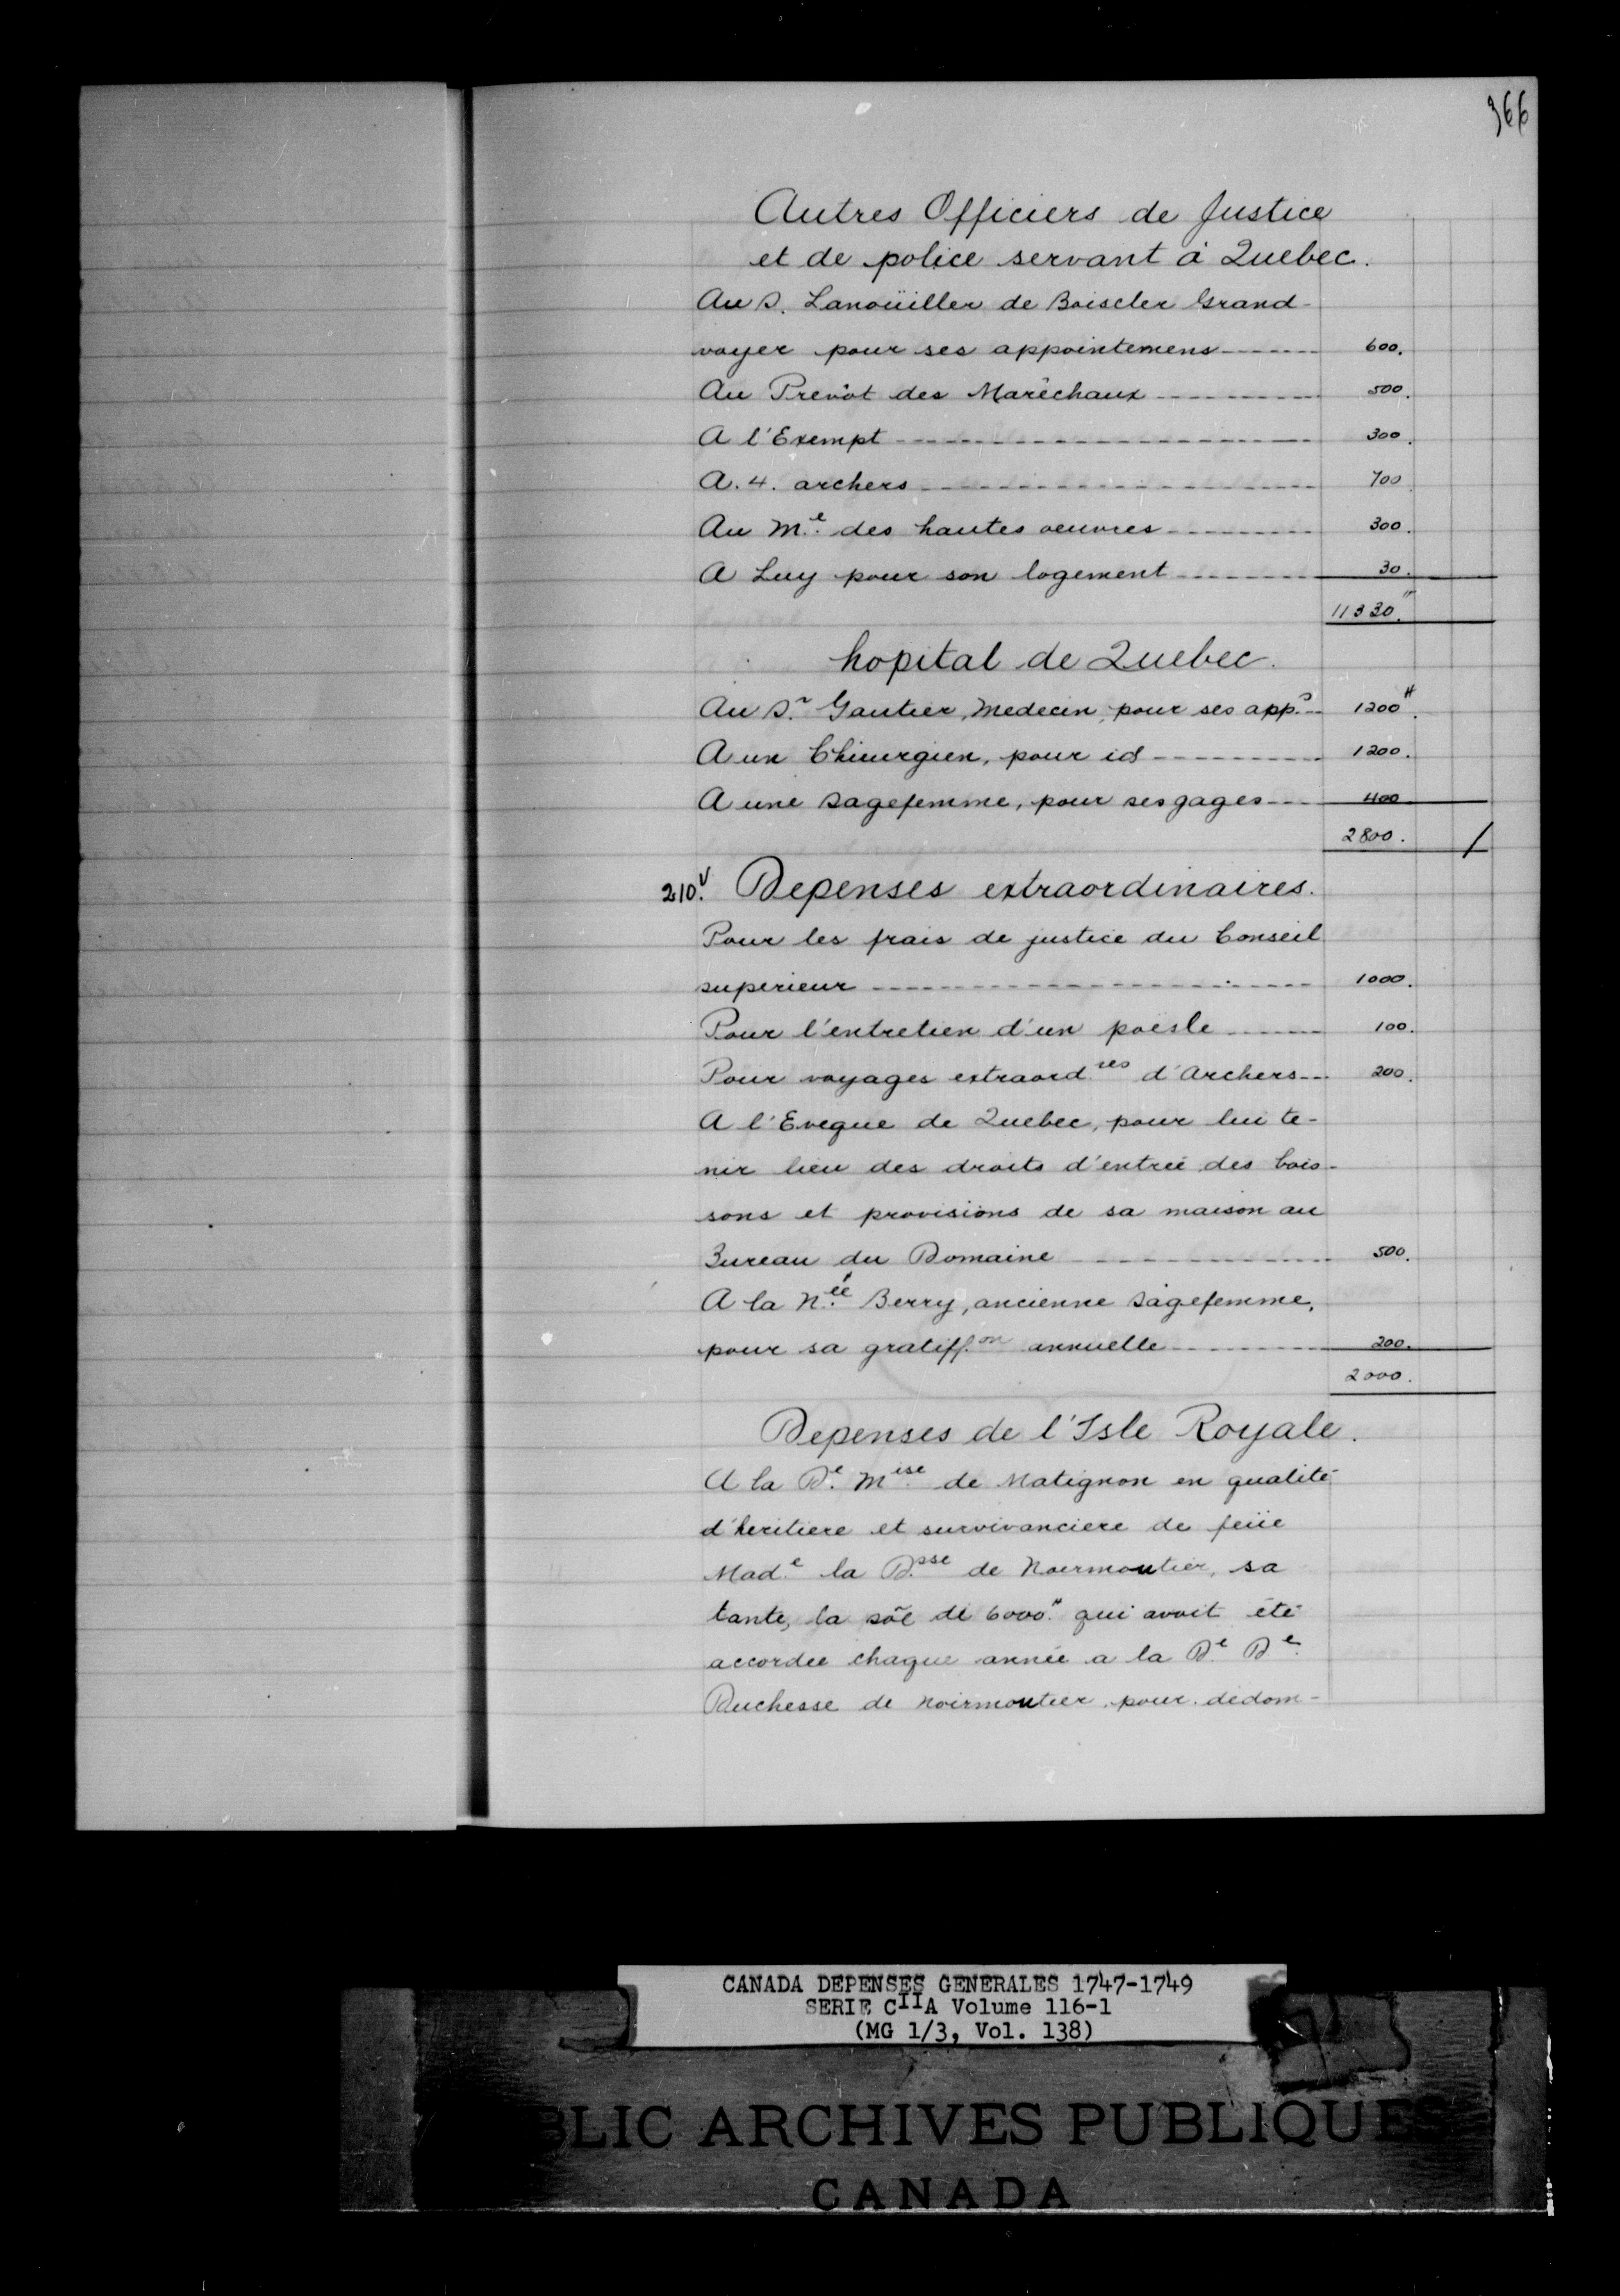 366
Autres Officiers de Justice
et de police servant à Quebec.
Au S. Lanoüiller de Boiscler Grand-
voyer pour ses appointemens ------- 600.
Au Prevôt des Maréchaux ----------- 500.
A l'Exempt ------------------------ 300.
A. 4. archers --------------------- 700
Au M.e des hautes oeuvres --------- 300.
A Luy pour son logement ---------- 30.
11330.
hopital de Quebec.
Au S.r Gautier, Medecin, pour ses app.s -- 1200.
A un Chirurgien, pour id ---------- 1200.
A une sagefemme, pour ses gages --- 400
2800.
210.v Depenses extraordinaires.
Pour les frais de justice du Conseil
superieur ------------------------- 1000.
Pour l'entretien d'un poësle ------ 100.
Pour voyages extraord.res d'Archers --- 200.
A l'Eveque de Quebec, pour lui te-
nir lieu des droits d'entrée des bois-
sons et provisions de sa maison au
Bureau du Domaine ---------------- 500.
A la N.ée Berry, ancienne sagefemme,
pour sa gratiff.on annuelle --------- 200.
2000.
Depenses de l'Isle Royale.
A la D.e M.ise de Matignon en qualité
d'heritiere et survivanciere de feüe
Mad.e la D.sse de Noirmoutier, sa
tante, la sõe de 6000." qui avoit été
accordée chaque année a la D.e D.e
Duchesse de Noirmoutier pour dédom-
CANADA DEPENSES GENERALES 1747-1749
SERIE CIIA Volume 116-1
(MG 1/3, Vol. 138)
BLIC ARCHIVES PUBLIQUES
CANADA